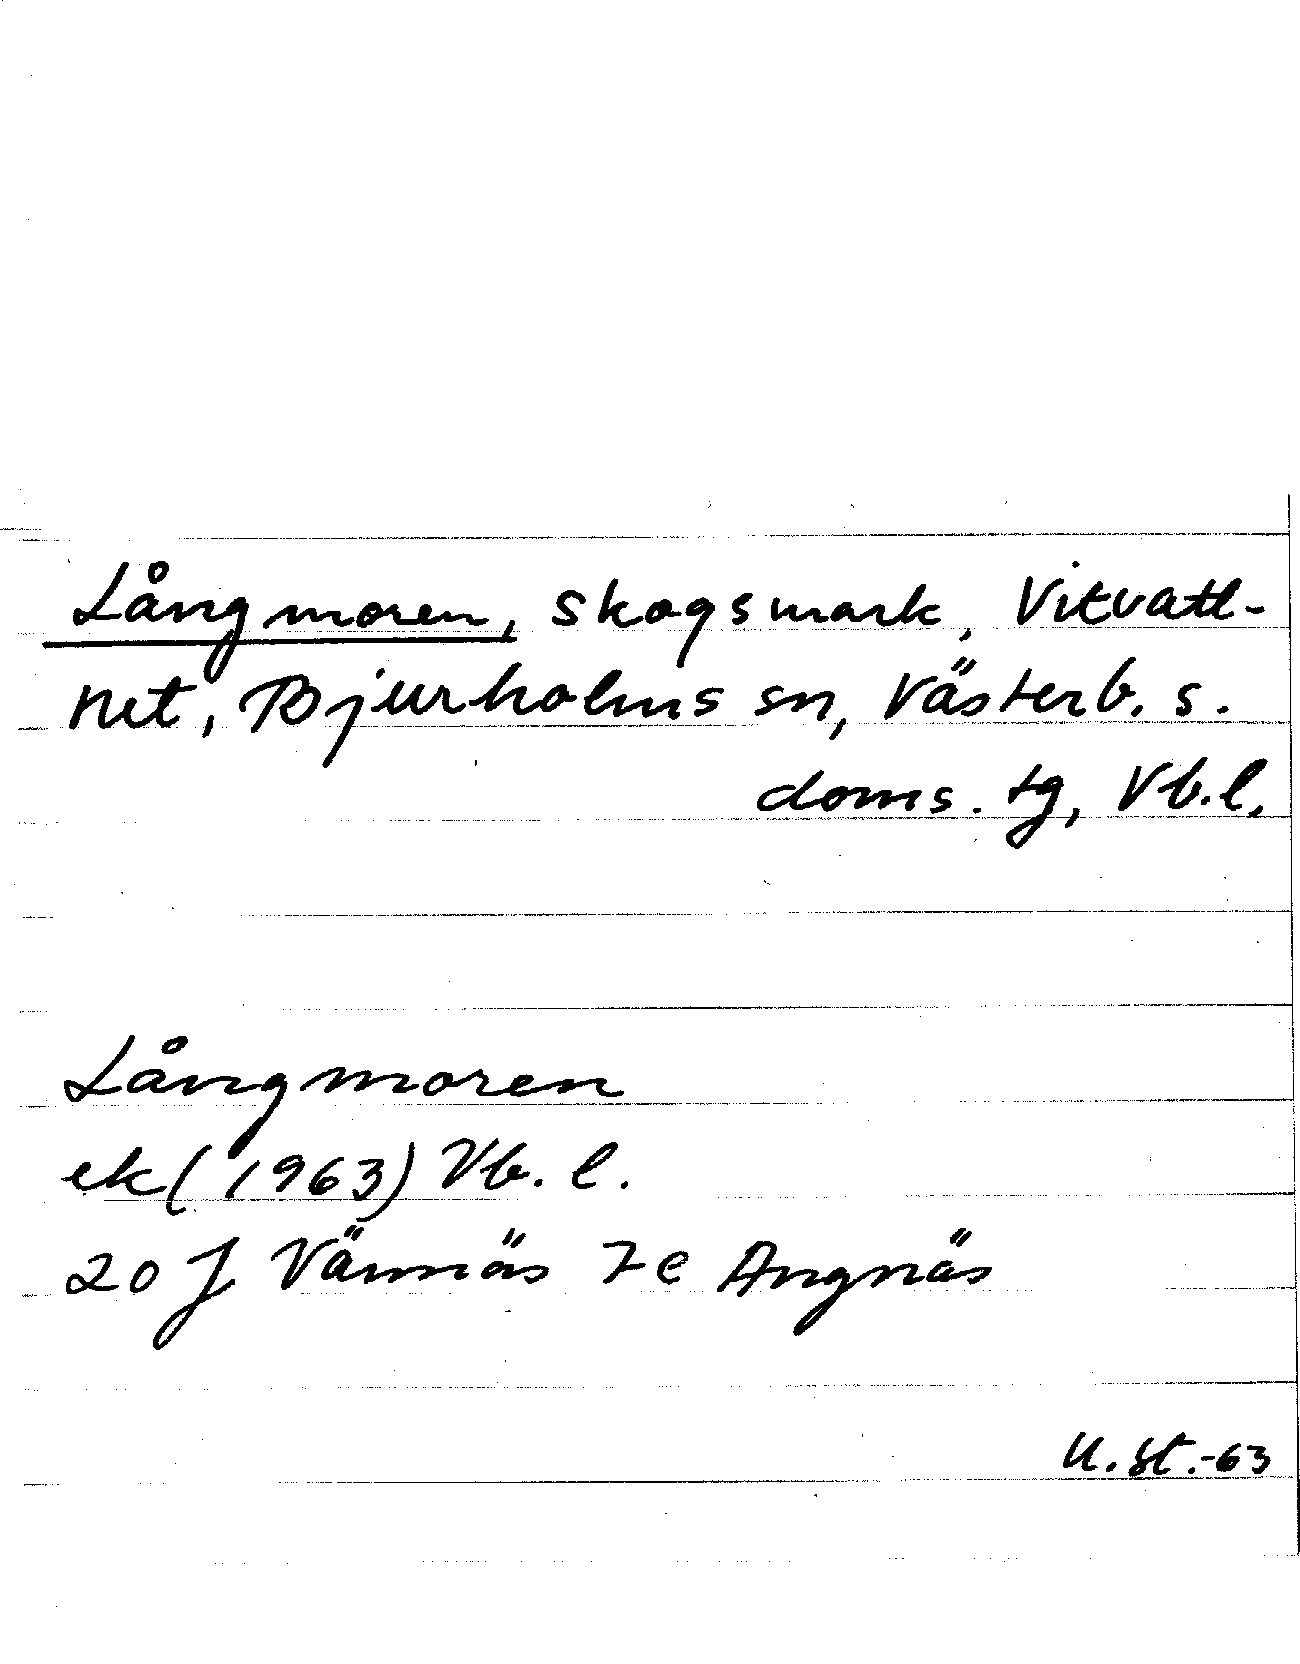 Långmoren, skogsmark, Vitvatt-
net, Bjurholms sn, Västerb. s.
doms. tg, Vb.l.
Långmoren
ek (1963) Vb. l.
20 J Vännäs 7e Angnäs
U. St.-63